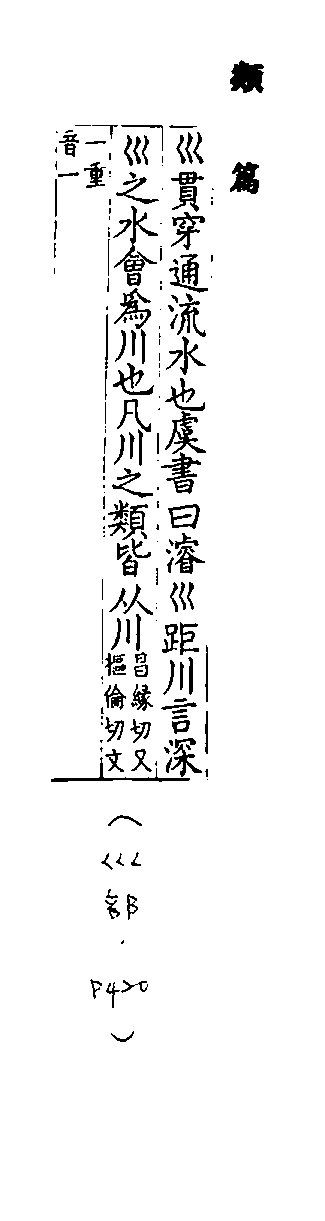 類篇
巛貫穿通流水也虞書曰濬巛距川言深
巛之水會爲川也凡川之類皆从川昌縁切又樞倫切文
一重音一
(巛部.P420)